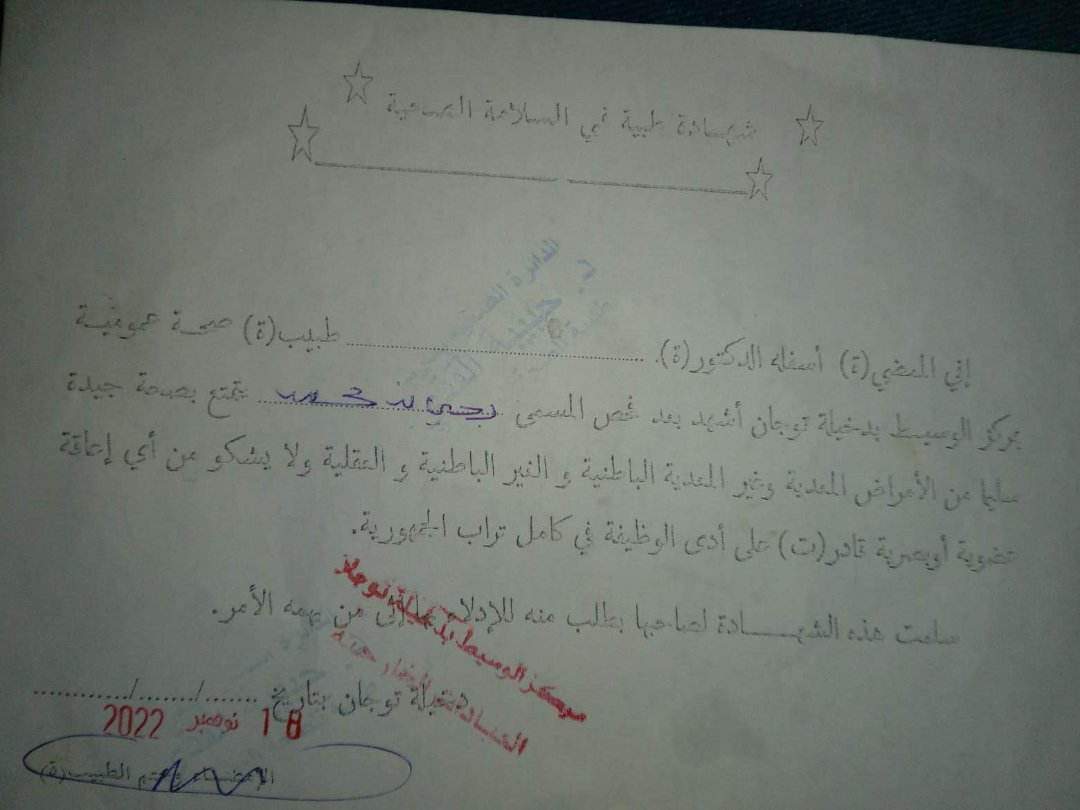 شهـــادة طبية في السلامة الصحية
الدائرة الصحية
د. حبيبة
إني الممضي(ة) أسفله الدكتور(ة)............ طبيب(ة) صحـة عموميـة
بمركز الوسيط بدخيلة توجان أشهد بعد فحص المسمى ............ يتمتع بصحة جيدة
سليما من الأمراض المعدية وغير المعدية الباطنية و الغير الباطنية و العقلية ولا يشكو من أي إعاقة
عضوية أوبصرية قادر(ت) على أدى الوظيفة في كامل تراب الجمهورية.
سلمت هذه الشهـــــادة لصاحبها بطلب منه للإدلاء بها إلى من يهمه الأمر.
مركز الوسيط بدخيلة توجان
العيادة الخارجية
دخيلة توجان بتاريخ ......./......./............
18 نوفمبر 2022
الإمضـــاء وختم الطبيب(ة)